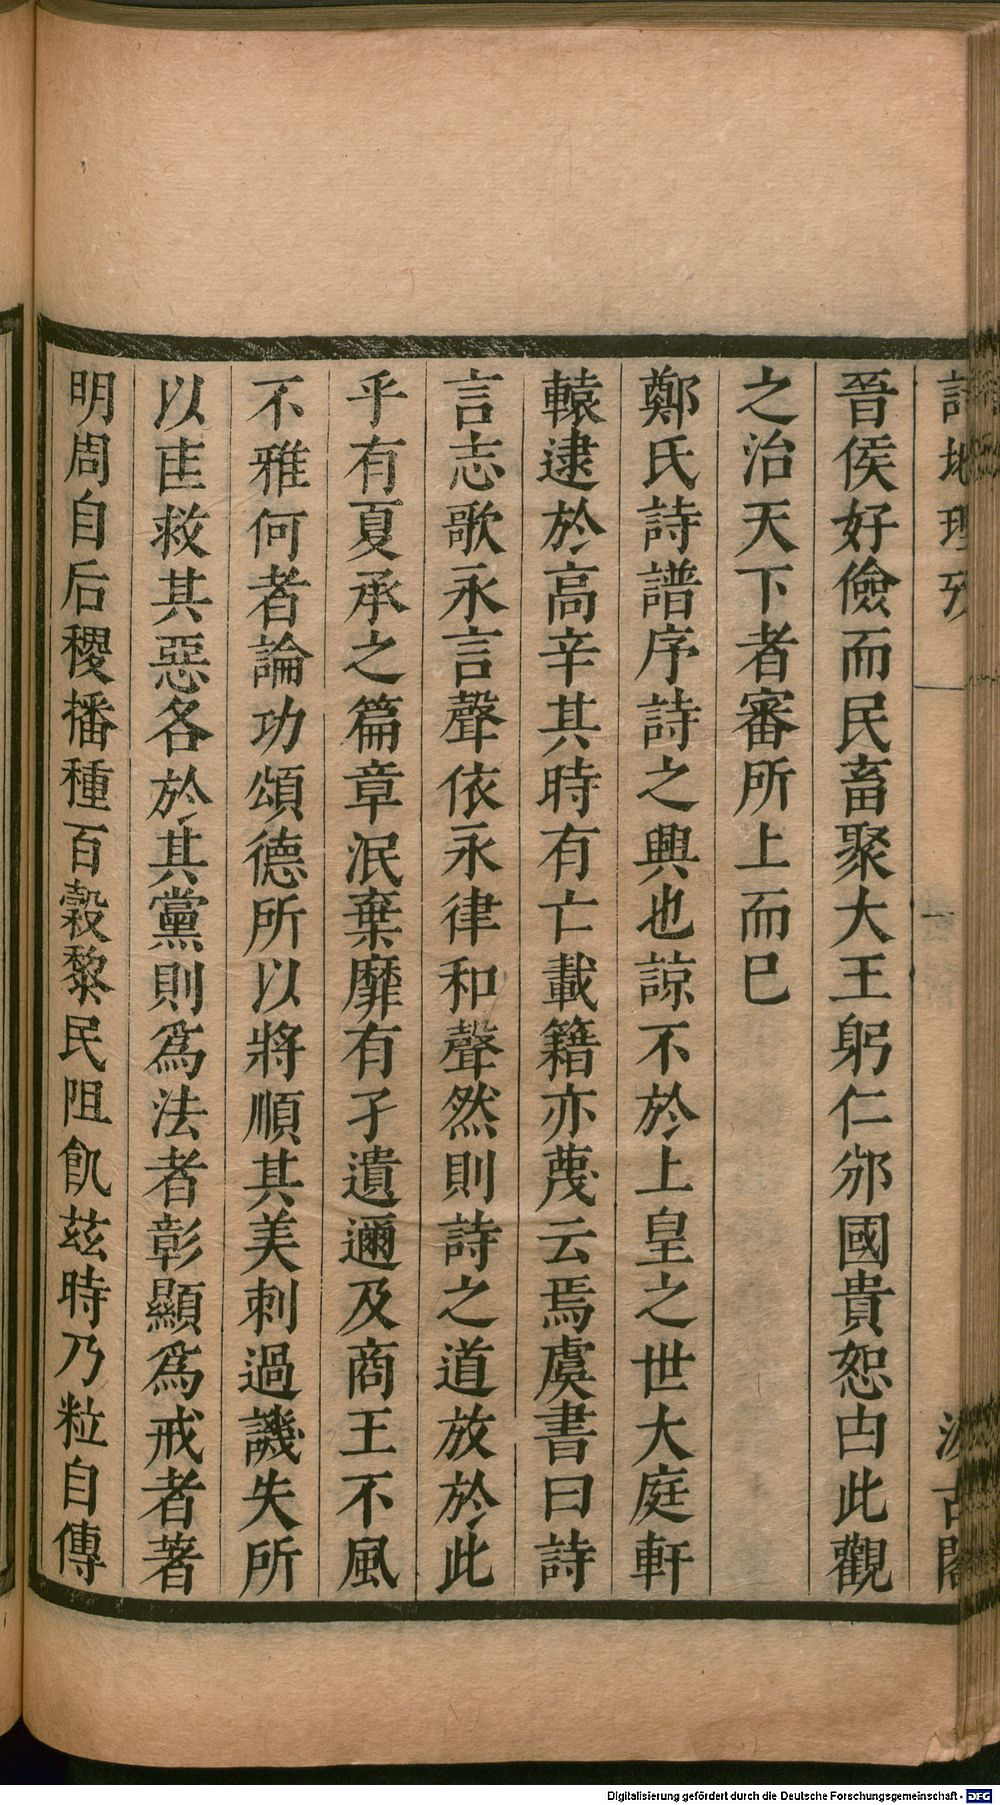 詩地理攷
汲古閣
晉侯好儉而民畜聚大王躬仁邠國貴恕由此觀
之治天下者審所上而已
鄭氏詩譜序詩之興也諒不於上皇之世大庭軒
轅逮於高辛其時有亡載籍亦蔑云焉虞書曰詩
言志歌永言聲依永律和聲然則詩之道放於此
乎有夏承之篇章泯棄靡有孑遺邇及商王不風
不雅何者論功頌德所以將順其美刺過譏失所
以匡救其惡各於其黨則爲法者彰顯爲戒者著
明周自后稷播種百穀黎民阻飢茲時乃粒自傳
Digitalisierung gefördert durch die Deutsche Forschungsgemeinschaft - DFG